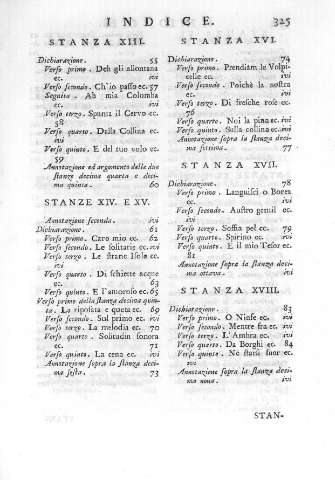 INDICE. 325
STANZA XIII.
Dichiarazione. 55
Verso primo. Deh gli allontana
ec. ivi
Verso secondo. Ch'io passo ec. 57
Seguita. Ah mia Colomba
ec. ivi
Verso terzo. Spunta il Cervo ec.
58
Verso quarto. Dalla Collina ec.
ivi
Verso quinto. E del tuo volo ec.
59
Annotazione ed argomento delle due
stanze decima quarta e deci-
ma quinta. 60
STANZE XIV. E XV.
Annotazione seconda. ivi
Dichiarazione. 61
Verso primo. Caro mio ec. 62
Verso secondo. Le solitarie ec. ivi
Verso terzo. Le strane Isole ec.
ivi
Verso quarto. Di schiette acque
ec. 63
Verso quinto. E l'amoroso ec. 65
Verso primo della stanza decima quin-
ta. La riposata e queta ec. 69
Verso secondo. Sul primo ec. ivi
Verso terzo. La melodia ec. 70
Verso quarto. Solitudin sonora
ec. 71
Verso quinto. La cena ec. ivi
Annotazione sopra la stanza deci-
ma sesta. 73
STANZA XVI.
Dichiarazione. 74
Verso primo. Prendiam le Volpi-
celle ec. ivi
Verso secondo. Poichè la nostra
ec. ivi
Verso terzo. Di fresche rose ec.
76
Verso quarto. Noi la pina ec. ivi
Verso quinto. Sulla collina ec. ivi
Annotazione sopra la stanza deci-
ma settima. 77
STANZA XVII.
Dichiarazione. 78
Verso primo. Languisci o Borea
ec. ivi
Verso secondo. Austro gentil ec.
ivi
Verso terzo. Soffia pel ec. 79
Verso quarto. Spirino ec. ivi
Verso quinto. E il mio Tesor ec.
81
Annotazione sopra la stanza deci-
ma ottava. ivi
STANZA XVIII.
Dichiarazione. 83
Verso primo. O Ninfe ec. ivi
Verso secondo. Mentre fra ec. ivi
Verso terzo. L'Ambra ec. ivi
Verso quarto. Da Borghi ec. 84
Verso quinto. Ne starsi suor ec.
ivi
Annotazione sopra la stanza deci-
ma nona. ivi
STAN-